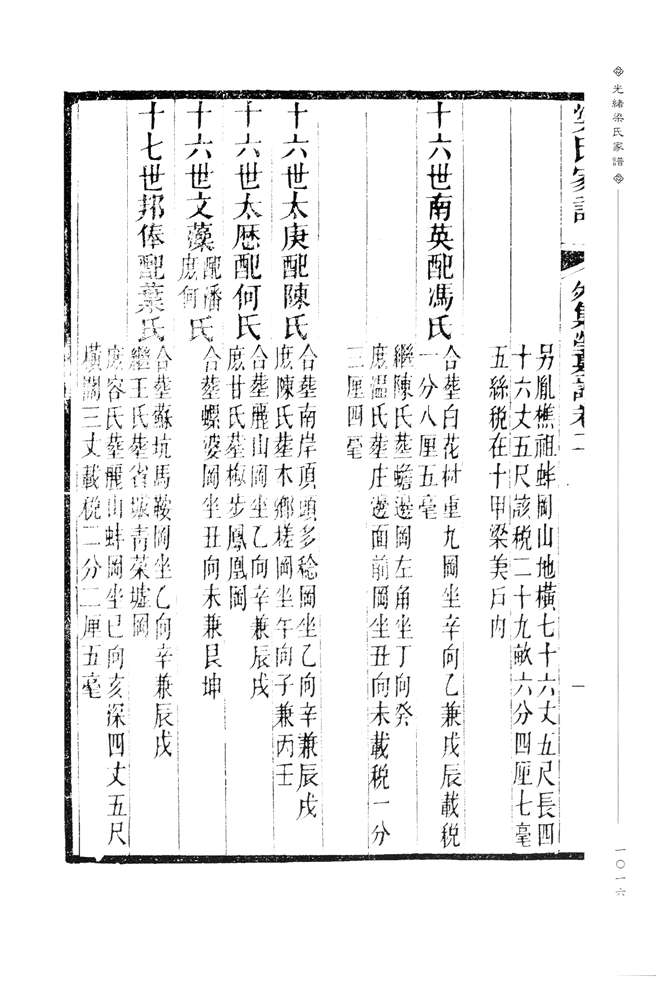 光緒梁氏家譜
一〇一六
梁氏家譜
外集塋墓譜卷二
一
另胤樵祖蚌岡山地橫七十六丈五尺長四
十六丈五尺該稅二十九畝六分四厘七毫
五絲稅在十甲梁美戶內
十六世南英配馮氏
合塟白花樹重九岡坐辛向乙兼戌辰載稅
一分八厘五毫
繼陳氏塟蟾邊岡左角坐丁向癸
庶溫氏塟庄邊面前岡坐丑向未載稅一分
三厘四毫
十六世太庚配陳氏
合塟南岸頂頭多稔岡坐乙向辛兼辰戌
庶陳氏塟木鄉槎岡坐午向子兼丙壬
十六世太歷配何氏
合塟麗山岡坐乙向辛兼辰戌
庶甘氏塟梅步鳳凰岡
十六世文藻配潘庶何氏
合塟螺婆岡坐丑向未兼艮坤
十七世邦俸配葉氏
合塟蘇坑馬鞍岡坐乙向辛兼辰戌
繼王氏塟省城青菜墟岡
庶容氏塟麗山蚌岡坐巳向亥深四丈五尺
橫闊三丈載稅二分二厘五毫